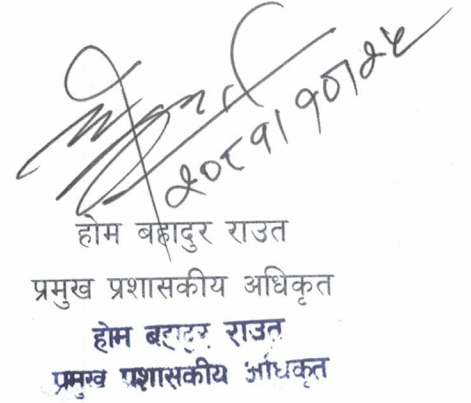 २०८१।१०।२५
होम बहादुर राउत
प्रमुख प्रशासकीय अधिकृत
होम बहादुर राउत
प्रमुख प्रशासकीय अधिकृत